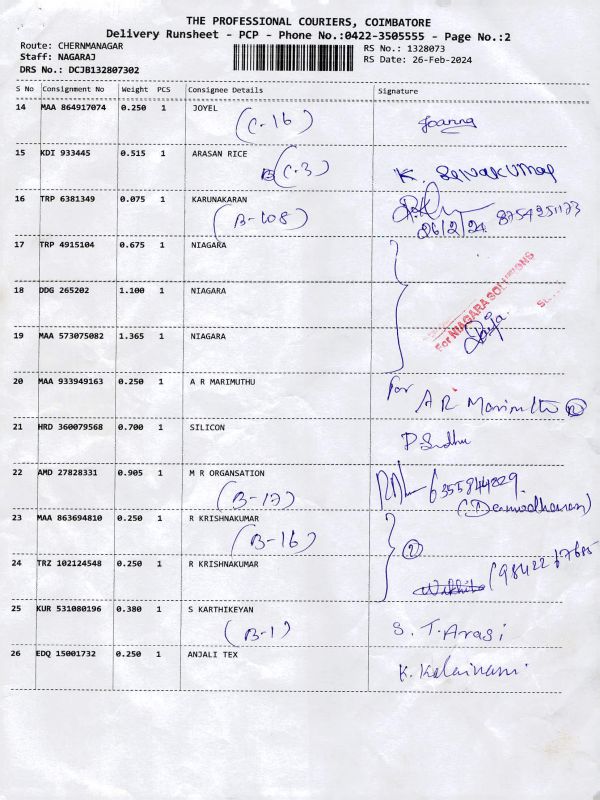 THE PROFESSIONAL COURIERS, COIMBATORE
Delivery Runsheet - PCP - Phone No.:0422-3505555 - Page No.:2
Route: CHERNMANAGAR RS No.: 1328073
Staff: NAGARAJ RS Date: 26-Feb-2024
DRS No.: DCJB132807302
S No Consignment No Weight PCS Consignee Details Signature
14 MAA 864917074 0.250 1 JOYEL Joanna
(C-16)
15 KDI 933445 0.515 1 ARASAN RICE K. SELVAKUMAR
(C-3)
16 TRP 6381349 0.075 1 KARUNAKARAN
(B-108) 26/2/24 8754251173
17 TRP 4915104 0.675 1 NIAGARA
18 DDG 265202 1.100 1 NIAGARA
For NIAGARA SOLUTIONS
19 MAA 573075082 1.365 1 NIAGARA
20 MAA 933949163 0.250 1 A R MARIMUTHU For
A R Marimuthu
21 HRD 360079568 0.700 1 SILICON P Sudhu
22 AMD 27828331 0.905 1 M R ORGANSATION 6355844229
(B-17) (Deamodharan)
23 MAA 863694810 0.250 1 R KRISHNAKUMAR
(B-16) (2)
24 TRZ 102124548 0.250 1 R KRISHNAKUMAR
25 KUR 531080196 0.380 1 S KARTHIKEYAN S. T. Arasi
(B-1)
26 EDQ 15001732 0.250 1 ANJALI TEX K. Kalaivani